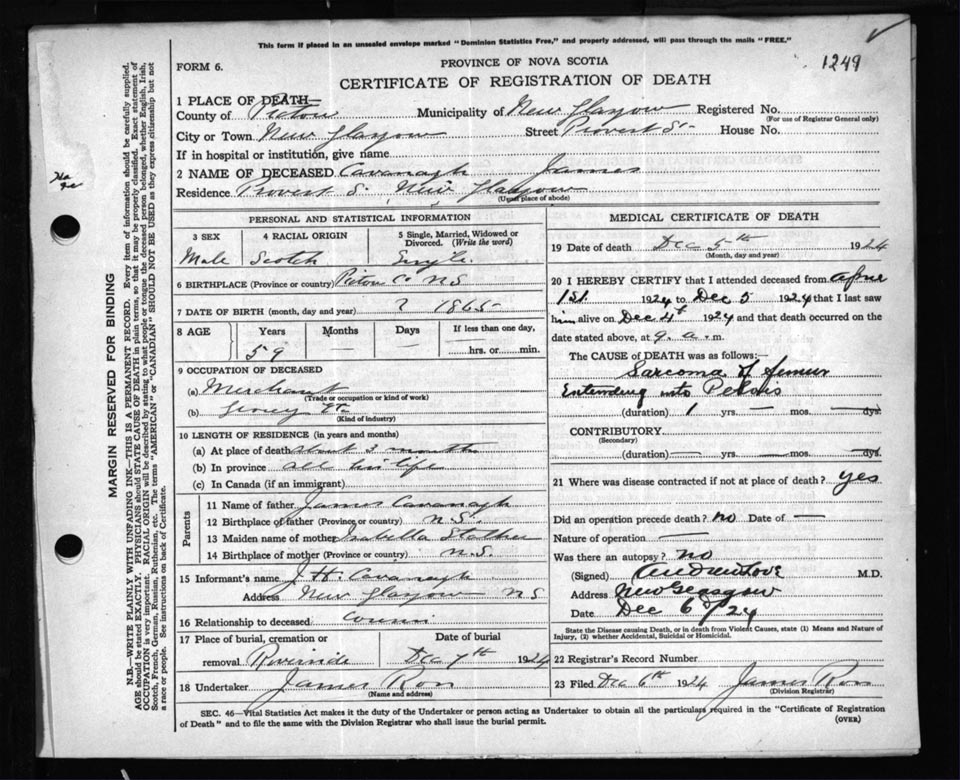 This form if placed in an unsealed envelope marked "Dominion Statistics Free," and properly addressed, will pass through the mails "FREE."
1249
FORM 6.
PROVINCE OF NOVA SCOTIA
CERTIFICATE OF REGISTRATION OF DEATH
1 PLACE OF DEATH
County of Pictou Municipality of New Glasgow Registered No.
(For use of Registrar General only)
City or Town New Glasgow Street Provost St House No.
If in hospital or institution, give name
2 NAME OF DECEASED Cavanagh James
Residence Provost S. New Glasgow
(Usual place of abode)
PERSONAL AND STATISTICAL INFORMATION
3 SEX 4 RACIAL ORIGIN 5 Single, Married, Widowed or Divorced. (Write the word)
Male Scotch Single
6 BIRTHPLACE (Province or country) Pictou Co N S
7 DATE OF BIRTH (month, day and year) ? 1865
8 AGE Years Months Days If less than one day,
59 — — hrs. or min.
9 OCCUPATION OF DECEASED
(a) Merchant
(Trade or occupation or kind of work)
(b)
(Kind of industry)
10 LENGTH OF RESIDENCE (in years and months)
(a) At place of death about 3 months
(b) In province all his life
(c) In Canada (if an immigrant)
Parents
11 Name of father James Cavanagh
12 Birthplace of father (Province or country) N.S.
13 Maiden name of mother Isabella
14 Birthplace of mother (Province or country) N.S.
15 Informant's name J. H. Cavanagh
Address New Glasgow N S
16 Relationship to deceased cousin
17 Place of burial, cremation or removal Riverside Date of burial Dec 7th 1924
18 Undertaker James Ross
(Name and address)
MEDICAL CERTIFICATE OF DEATH
19 Date of death Dec 5th 1924
(Month, day and year)
20 I HEREBY CERTIFY that I attended deceased from
1st 1924 to Dec 5 1924 that I last saw
him alive on Dec 4th 1924 and that death occurred on the
date stated above, at 9. a. m.
The CAUSE of DEATH was as follows:—
Sarcoma of femur
Extending into Pelvis
(duration) 1 yrs. — mos. — dys.
CONTRIBUTORY
(Secondary)
(duration) — yrs. — mos. — dys.
21 Where was disease contracted if not at place of death? yes
Did an operation precede death? no Date of —
Nature of operation —
Was there an autopsy? no
(Signed) Andrew Love M.D.
Address New Glasgow
Date Dec 6th/24
State the Disease causing Death, or in death from Violent Causes, state (1) Means and Nature of
Injury, (2) whether Accidental, Suicidal or Homicidal.
22 Registrar's Record Number
23 Filed Dec 6th 1924 James Ross
(Division Registrar)
SEC. 46—Vital Statistics Act makes it the duty of the Undertaker or person acting as Undertaker to obtain all the particulars required in the "Certificate of Registration
of Death" and to file the same with the Division Registrar who shall issue the burial permit.
(OVER)
MARGIN RESERVED FOR BINDING
N.B.—WRITE PLAINLY WITH UNFADING INK—THIS IS A PERMANENT RECORD. Every item of information should be carefully supplied.
AGE should be stated EXACTLY. PHYSICIANS should STATE CAUSE OF DEATH in plain terms, so that it may be properly classified. Exact statement of
OCCUPATION is very important. RACIAL ORIGIN will be described by stating to what people or tongue the deceased person belonged, whether English, Irish,
Scotch, French, German, Russian, Ruthenian, etc. The terms "AMERICAN" or "CANADIAN" SHOULD NOT BE USED as they express citizenship but not
a race or people. See instructions on back of Certificate.